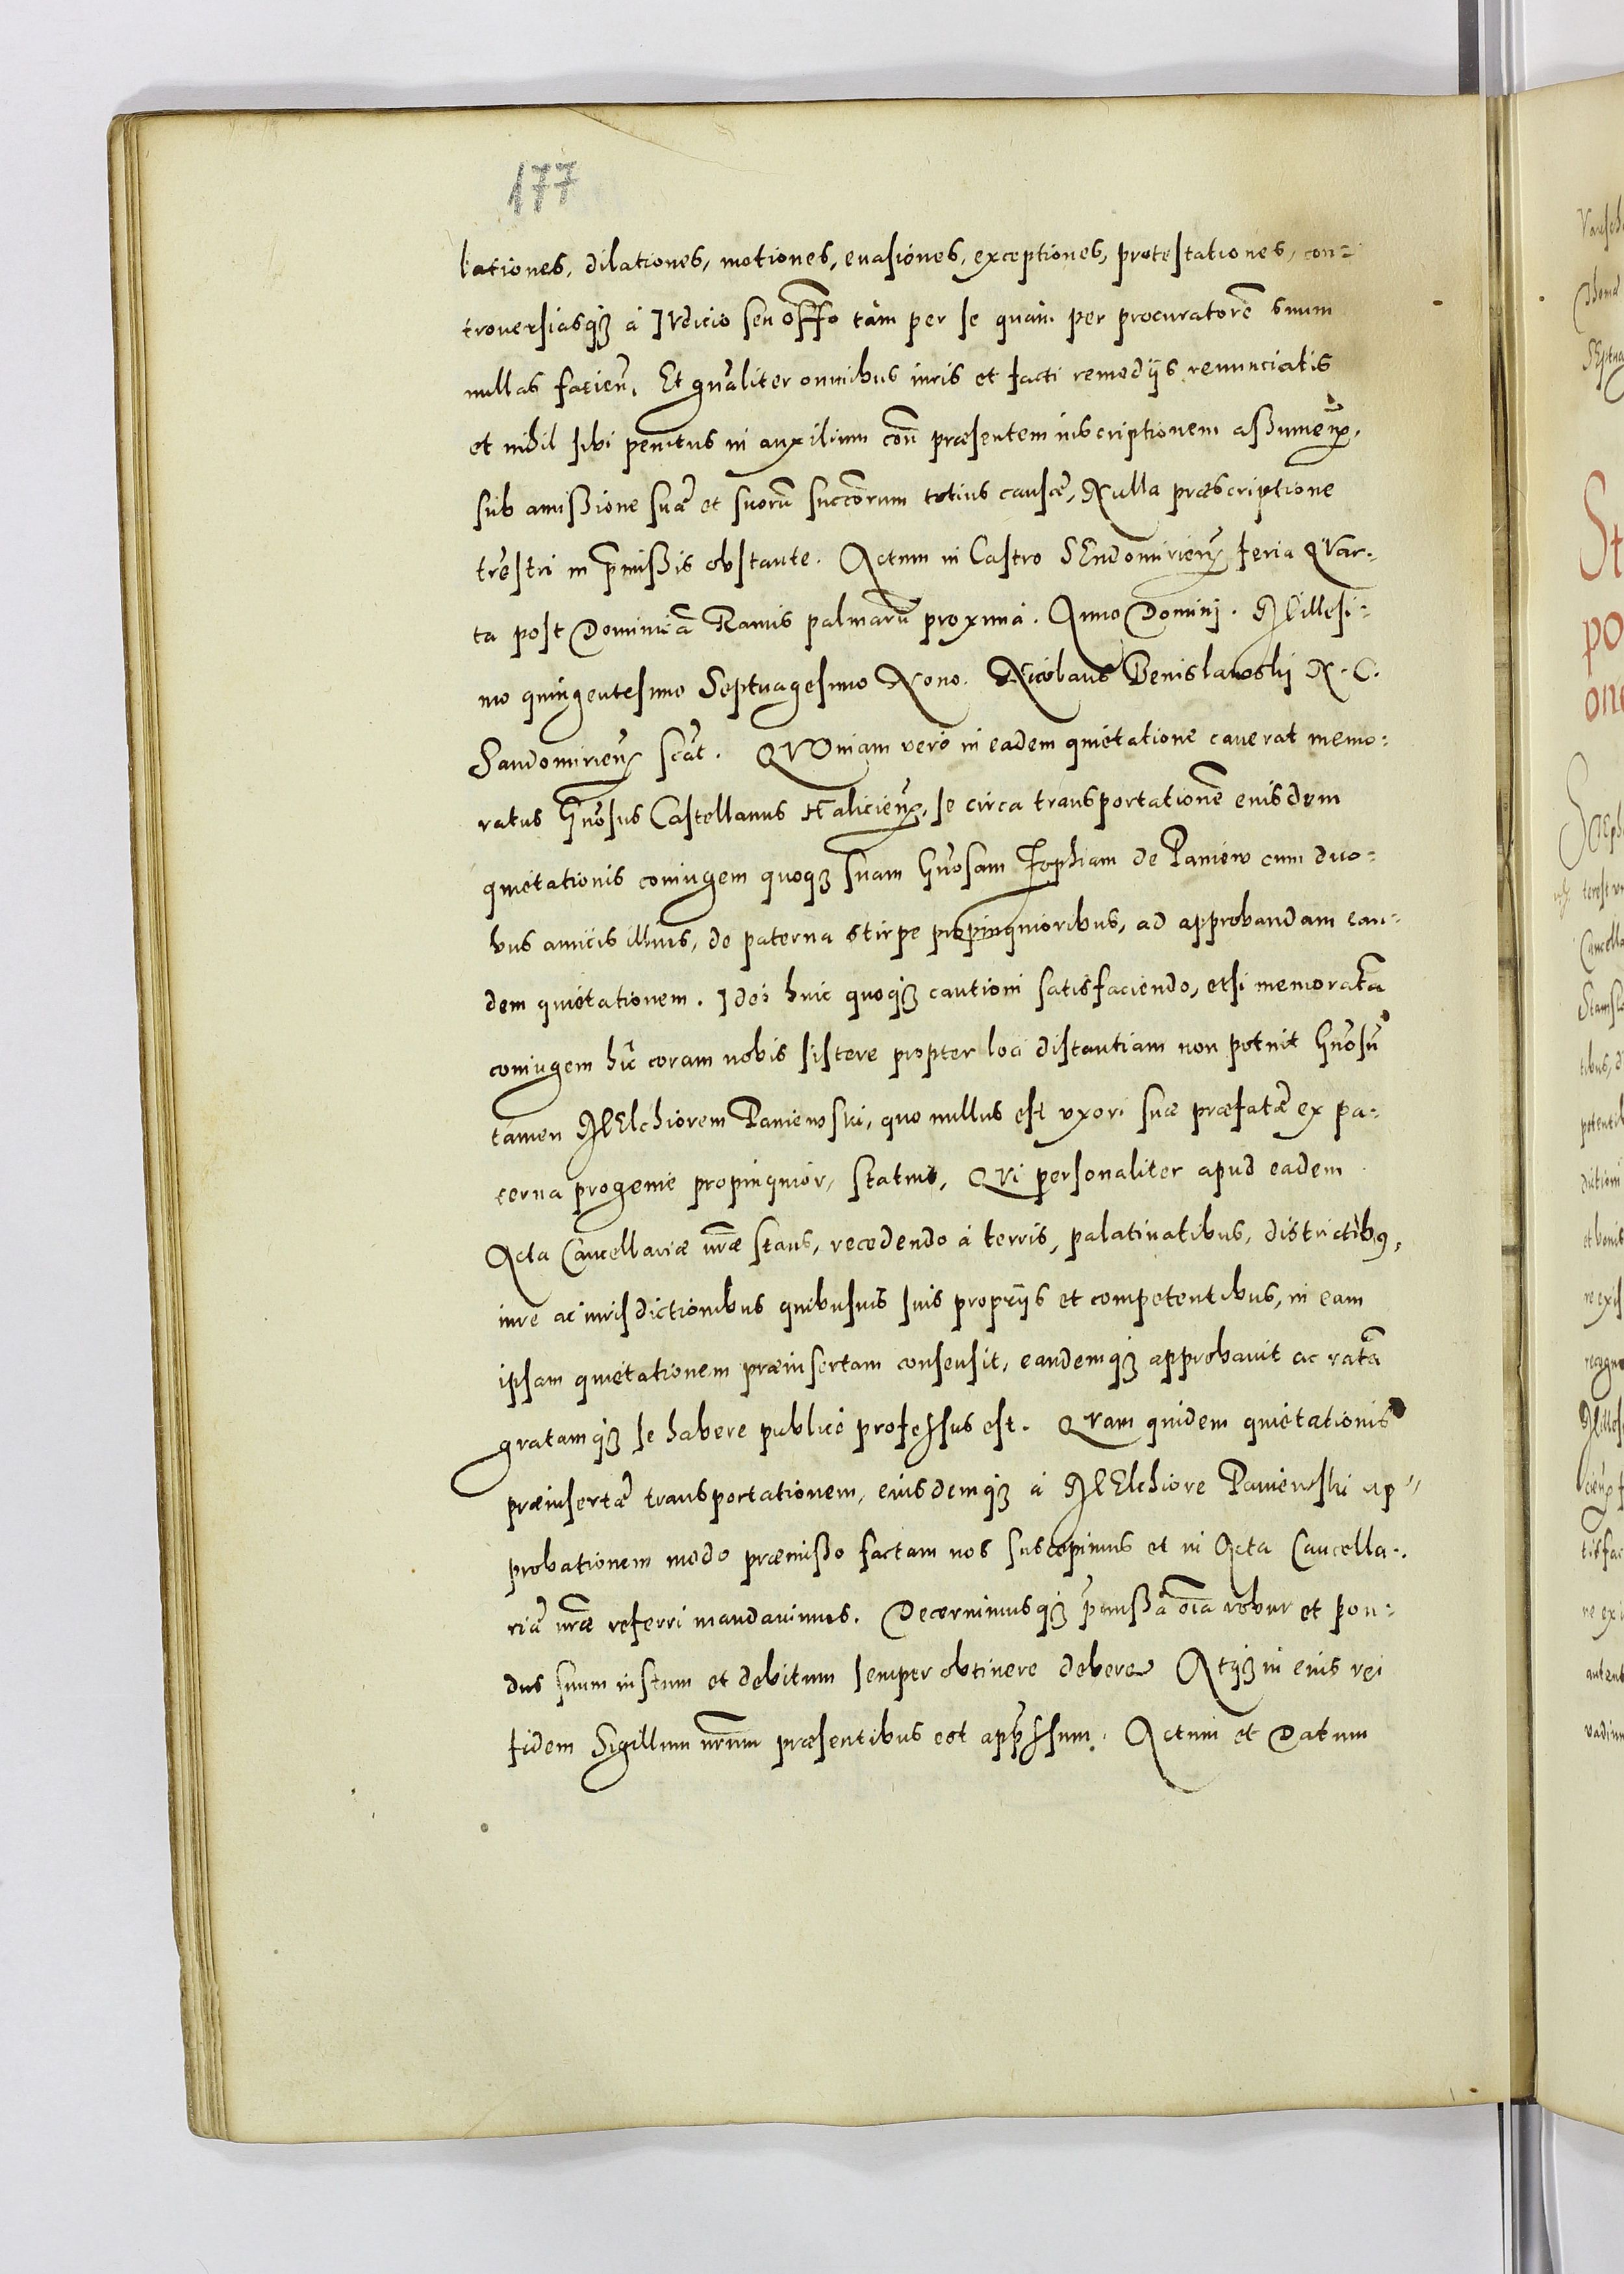 177
lationes, dilationes, motiones, euasiones, exceptiones, protestationes, con=
trouersiasq₃ á IVdicio seu offo tám per se quám per procuratorē suum
nullas facien̄. Et gn̄aliter omnibus iuris et facti remedijs renunciatis
et nihil sibi penitus in auxilium con̄ præsentem inscriptionem assumen̄.
sub amissione suæ et suorū succōrum totius causæ, Nulla præscriptione
tr̄estri in p̄missis obstante. Actum in Castro SEndomirien̄ feria QVar-
ta post Dominicā Ramis palmarū proxima. Anno Dominj. Millesi=
mo quingentesimo Septuagesimo Nono. Nicolaus Benislawskij N. C.
Sandomirien̄ scāt. QVOniam veró in eadem quietatione cauerat memo=
ratus Gn̄osus Castellanus Halicien̄, se circa transportationē eiusdem
quietationis coniugem quoq₃ suam Gn̄osam Zophiam de Paniew cum duo=
bus amicis illius, de paterna stirpe propinquioribus, ad approbandam ean=
dem quietationem. Ideó huic quoq₃ cautioni satisfaciendo, etsi memoratā
coniugem hūc coram nobis sistere propter loci distantiam non potuit Gn̄osū
tamen MElchiorem Paniewski, quo nullus est vxori suæ præfatæ ex pa=
terna progenie propinquior, statuit, QVi personaliter apud eadem
Acta Cancellariæ nr̄æ stans, recedendo á terris, palatinatibus, districtibus,
iure ac iurisdictionibus quibusuis suis proprijs et competentibus, in eam
ipsam quietationem præinsertam consensit, eandemq₃ approbauit ac ratā
gratamq₃ se habere publicé professus est. QVam quidem quietationis
præinsertæ transportationem, eiusdemq₃ á MElchiore Paniewski ap=
probationem modo præmisso factam nos suscepimus et in Acta Cancella-
riæ nr̄æ referri mandauimus. Decernimusq₃ p̄missa oīa robur et pon=
dus suum iustum et debitum semper obtinere debere Atq₃ in eius rei
fidem Sigillum nr̄um præsentibus est app̄ssum. Actum et Datum